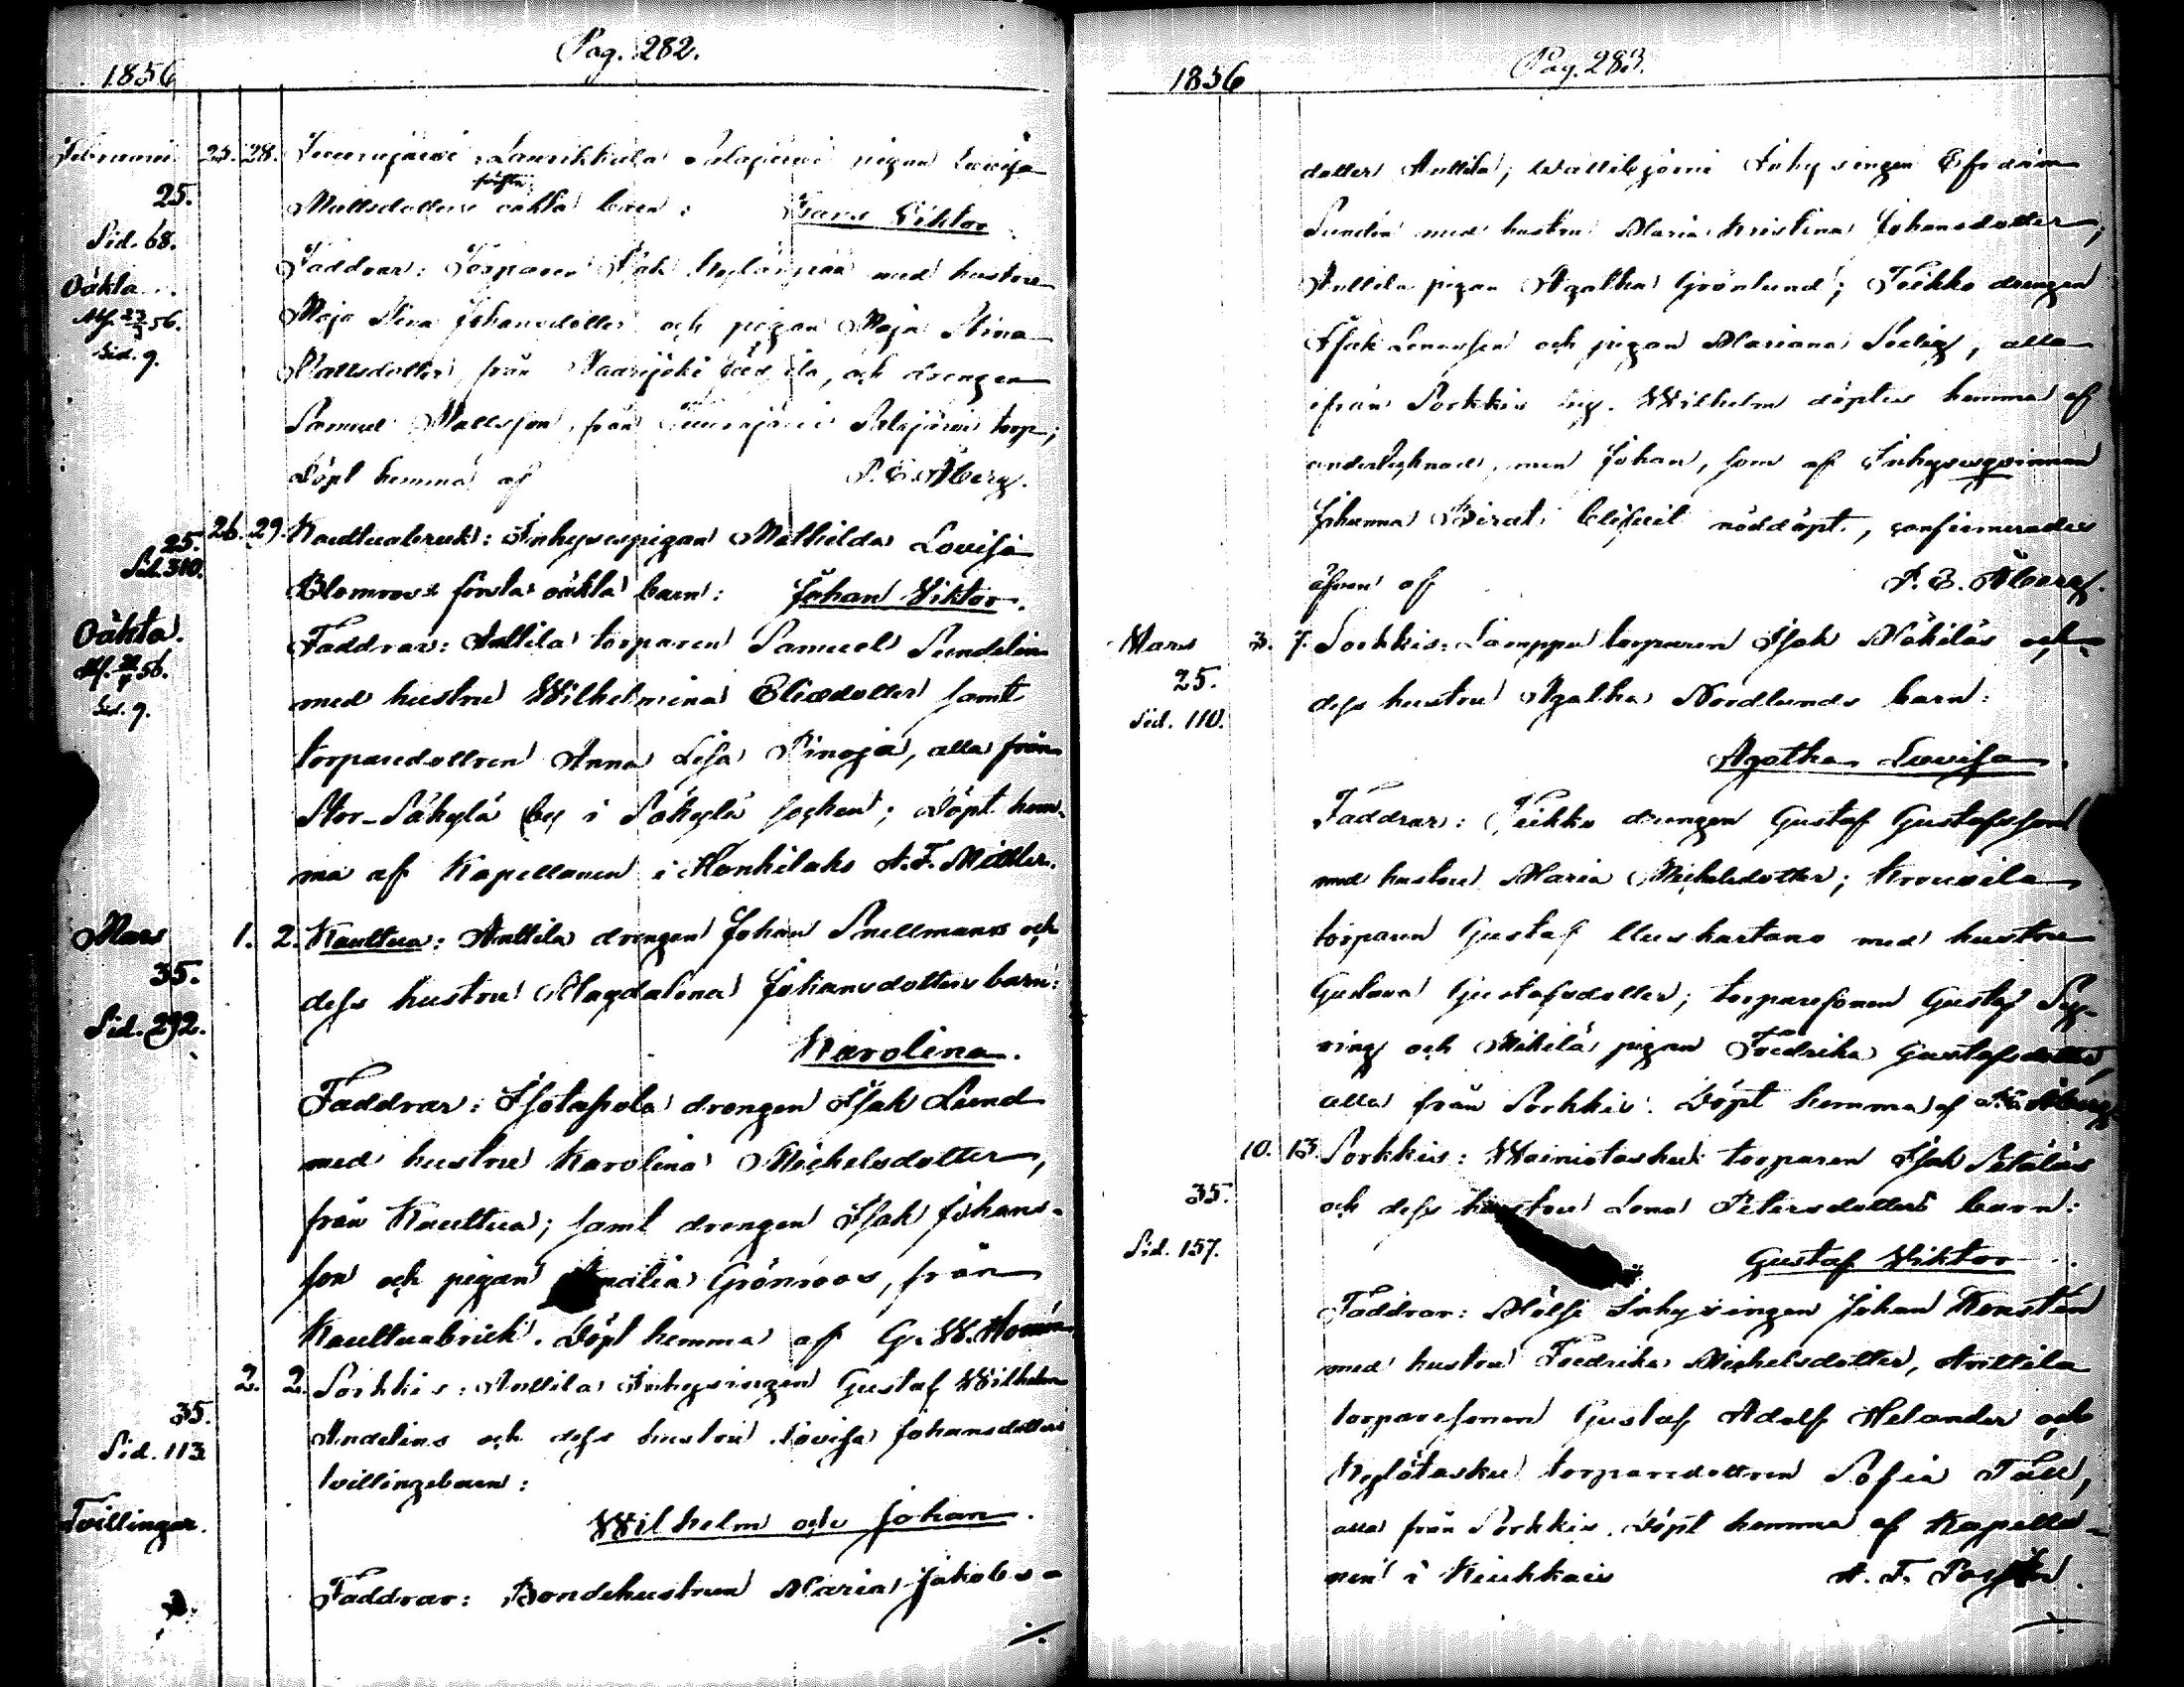 Pag. 282.
1856
Februari 25. 28. Laurikkala pigan Lovisa
25.
första
Mattsdotters oäkta barn: Frans Viktor
Sid. 68.
Faddrar: Torparen Isak med hustru
Oäkta
Maja Stina Johansdotter och pigan Maja Stina
Sid. 9.
Mattsdotter, från och drengen
Samuel Mattsson, från torp;
Döpt hemma af P. E. Åberg.
25. 26. 29. Kauttuabruk: Inhysespigan Mathilda Lovisa
Sid. 310.
Blomroos första oäkta barn: Johan Viktor.
Oäkta.
Faddrar: Anttila torparen Samuel Sundelin
med hustru Wilhelmina Eliædotter samt
Sid. 9.
torparedottren Anna Lisa Pinoja, alla från
Stor-Säkylä by i Säkylä socken; Döpt hem-
ma af Kapellanen i Honkilaks A. F. Miller.
Mars 1. 2. Kauttua: Anttila drengen Johan Snellmans och
35.
dess hustru Magdalena Johansdotters barn:
Sid. 292.
Karolina.
Faddrar: Isotalola drengen Isak Lund
med hustru Karolina Michelsdotter,
från Kauttua; samt drengen Isak Johans-
son och pigan Grönroos, från
Kauttuabruk. Döpt hemma af G. W.
2. 2. Sorkkis: Anttila Inhysingen Gustaf Wilhelm
35.
Andelins och dess hustru Lovisa Johansdotters
Sid. 113
tvillingebarn:
Tvillingar.
Wilhelm och Johan.
Faddrar: Bondehustrun Maria Jakobs-
Pag. 283.
1856
dotter Anttila; Inhysingen Efraim
Sundin med hustru Maria Kristina Johansdotter;
Anttila pigan Agatha Grönlund; Teikko drengen
Isak och pigan Mariana alla
ifrån Sorkkis by. Wilhelm döptes hemma af
undertecknad, men Johan, som af Inhysesqvinnan
Johanna blifvit nöddöpt, confirmerades
äfven af P. E. Åberg.
Mars 3. 7. Sorkkis: Lamppu torparen Isak Mäkiläs och
25.
dess hustru Agatha Nordlunds barn:
Sid. 110.
Agatha Lovisa.
Faddrar: Teikko drengen Gustaf Gustafsson
med hustru Maria Michelsdotter; Krouvila
torparen Gustaf Uusikartano med hustru
Gustava Gustafsdotter; torparesonen Gustaf Syr-
ring och Mikilä pigan Fredrika Gustafsdotter,
alla från Sorkkis. Döpt hemma af Åberg
10. 13. Sorkkis: Wainiotasku torparen Isak Setäläs
35.
och dess hustru Lena Petersdotters barn:
Sid. 157.
Gustaf Viktor
Faddrar: Mölsi Inhysingen Johan Konstén
med hustru Fredrika Michelsdotter, Anttila
torparesonen Gustaf Adolf Helander och
Kylötasku torparedottren Sofia Tall,
alla från Sorkkis. Döpt hemma af Kapella-
nen i Kiukkais A. F.